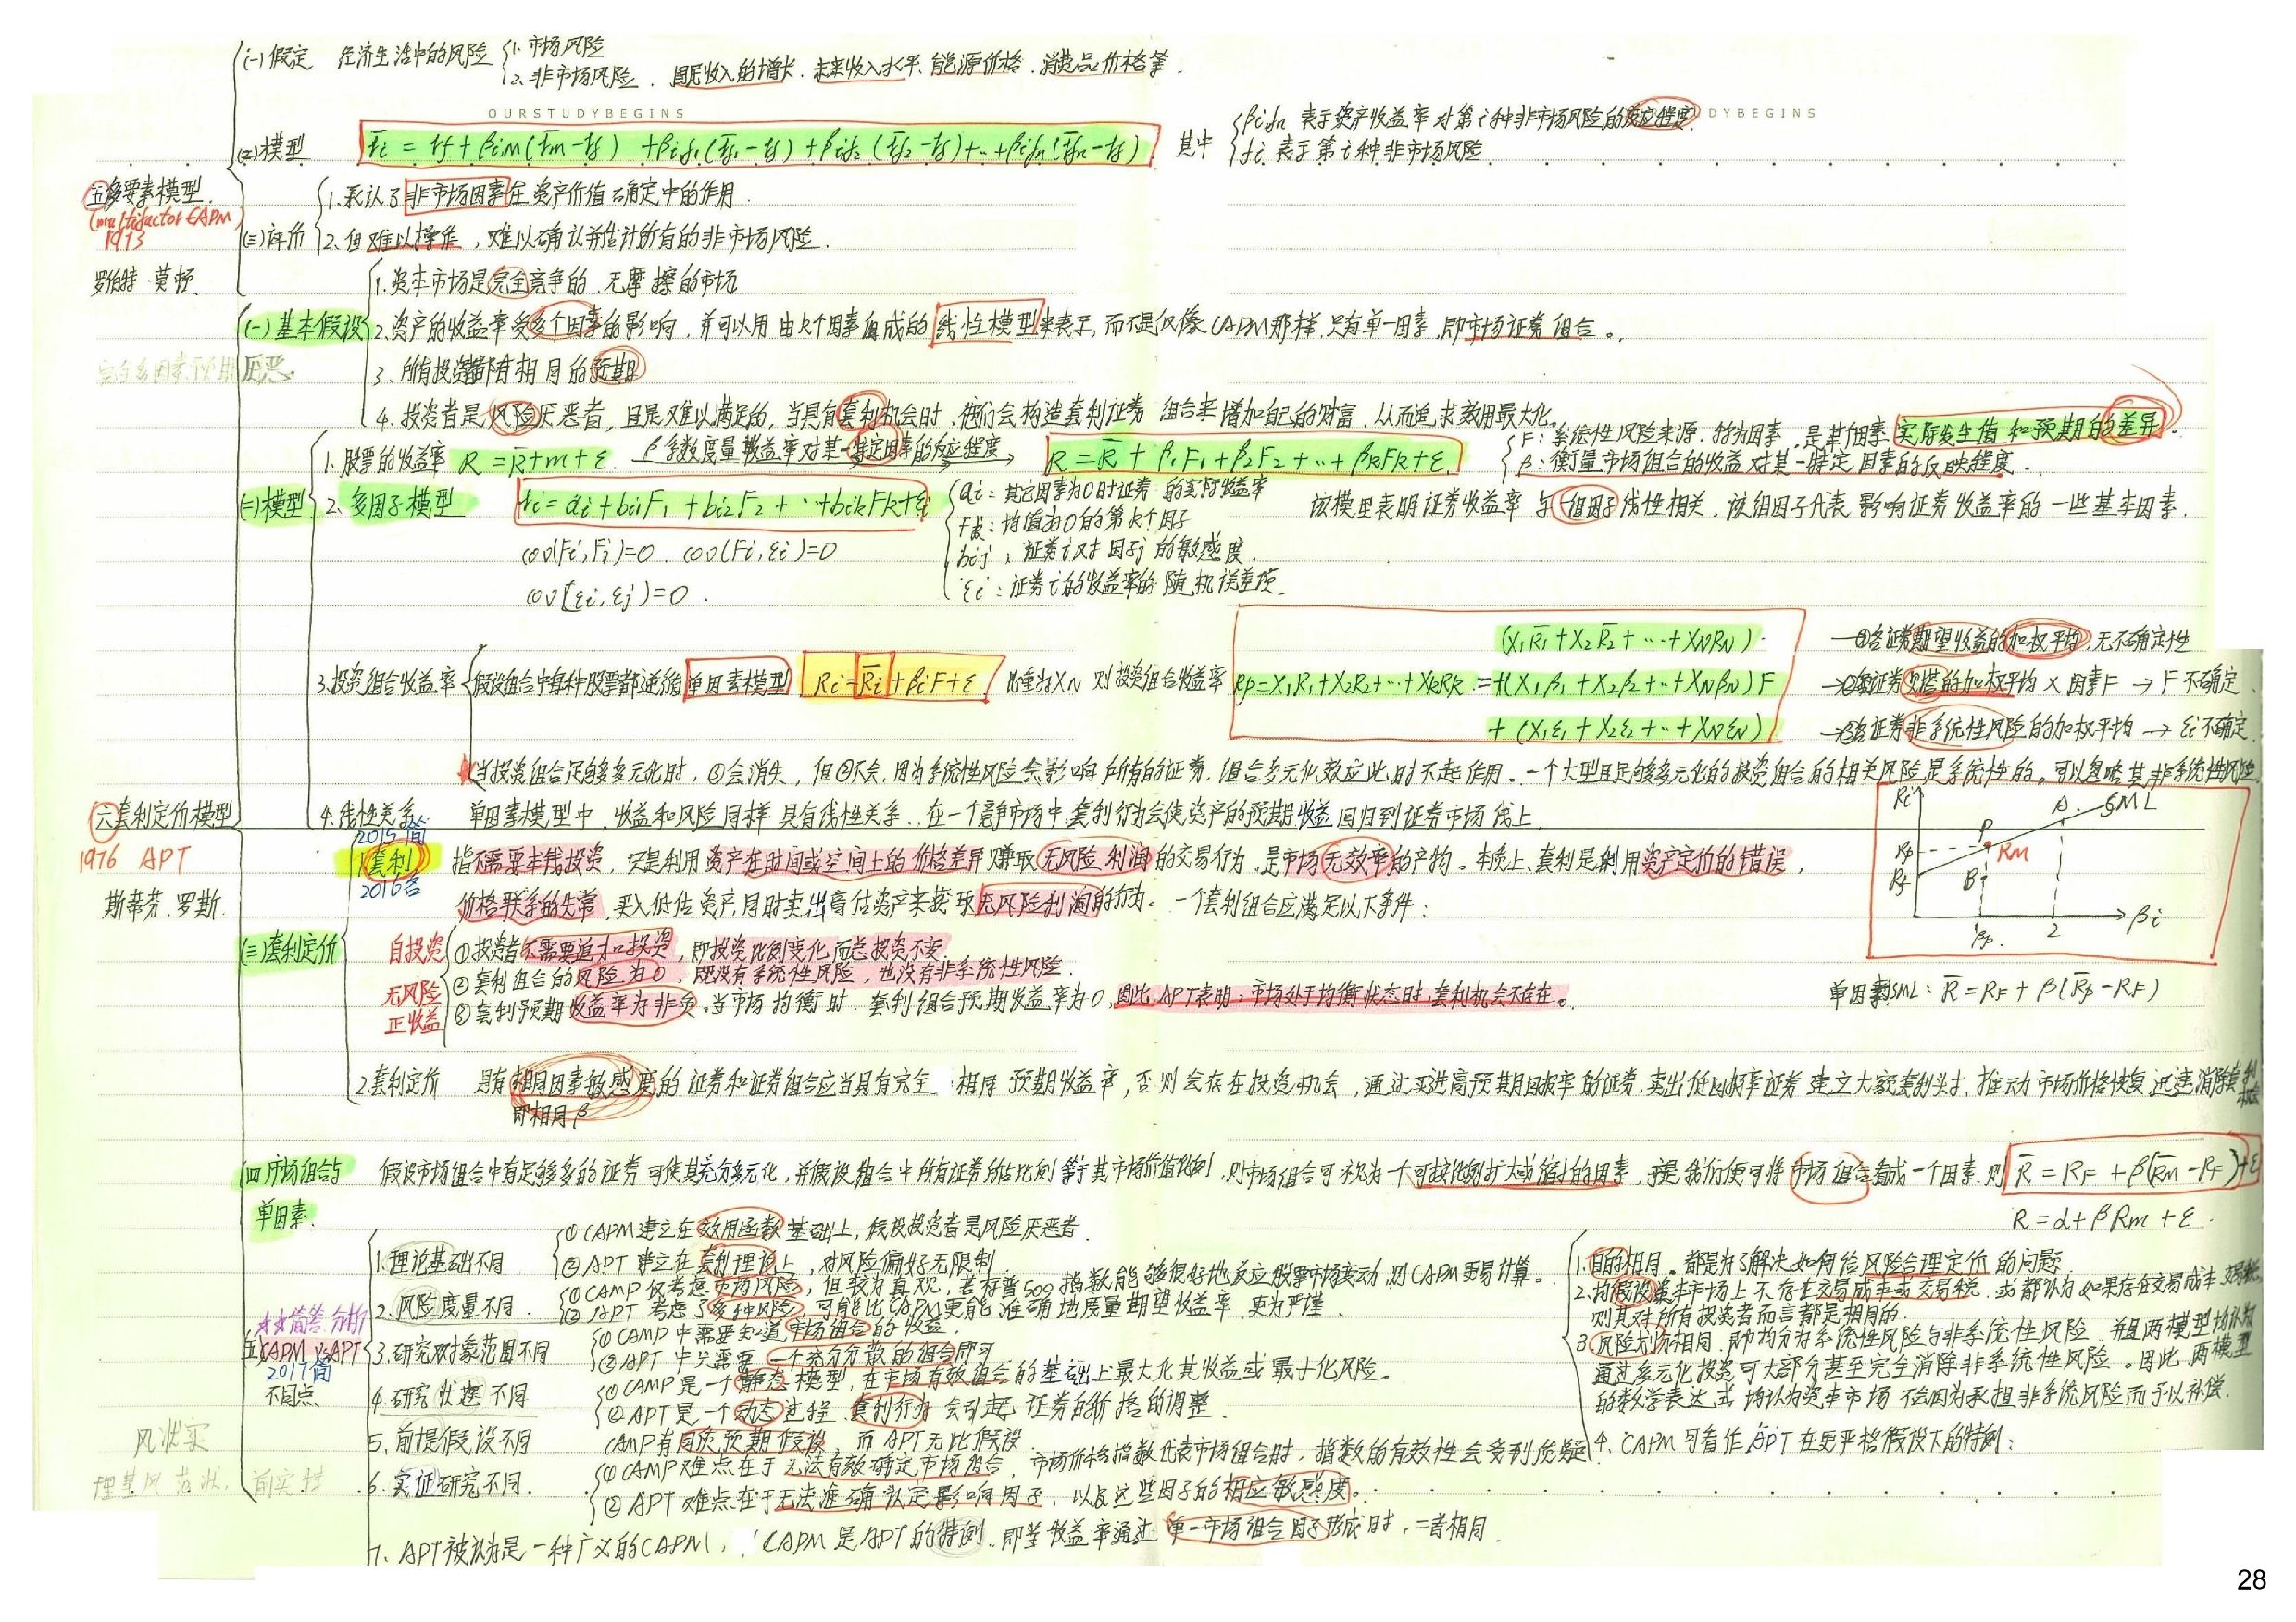 (一)假定 经济生活中的风险 1. 市场风险
2. 非市场风险. 国民收入的增长. 未来收入水平. 能源价格. 消费品价格等.
OURSTUDYBEGINS
DYBEGINS
(二)模型 r̄i = rf + βim(r̄m - rf) + βif1(r̄f1 - rf) + βif2(r̄f2 - rf) + … + βifn(r̄fn - rf) 其中
βifn 表示资产收益率对第i种非市场风险的反应程度
fi 表示第i种非市场风险
五多要素模型.
(multifactor CAPM)
1973
罗伯特·莫顿.
(三)评价
1. 承认了非市场因素在资产价值确定中的作用.
2. 但难以操作, 难以确认并估计所有的非市场风险.
六套利定价模型
1976 APT
斯蒂芬·罗斯.
(一)基本假设
1. 资本市场是完全竞争的. 无摩擦的市场
2. 资产的收益率受多个因素的影响, 并可以用由K个因素组成的线性模型来表示, 而不是仅像CAPM那样只有单一因素, 即市场证券组合。
3. 所有投资者都有相同的预期
4. 投资者是风险厌恶者, 且是难以满足的, 当具有套利机会时, 他们会构造套利证券组合来增加自己的财富, 从而追求效用最大化.
(二)模型
1. 股票的收益率 R = R̄ + m + ε. β系数度量收益率对某一特定因素的反应程度 → R = R̄ + β1F1 + β2F2 + … + βkFk + ε
F: 系统性风险来源. 称为因素, 是某个因素实际发生值和预期的差异.
β: 衡量市场组合的收益对某一特定因素的反映程度.
2. 多因子模型 ri = ai + bi1F1 + bi2F2 + … + bikFk + εi
ai: 其它因素为0时证券i的实际收益率
Fk: 均值为0的第K个因子
bij: 证券i对因子j的敏感度.
εi: 证券i的收益率的随机误差项.
该模型表明证券收益率与一组因子线性相关, 该组因子代表影响证券收益率的一些基本因素.
cov(Fi, Fj)=0. cov(Fi, εi)=0
cov(εi, εj)=0.
3. 投资组合收益率 假设组合中每种股票都遵循单因素模型 Ri = R̄i + βiF + ε, 比重为XN 则投资组合收益率
Rp = X1R1 + X2R2 + … + XkRk =
(X1R̄1 + X2R̄2 + … + XNRN) —①各证券期望收益的加权平均, 无不确定性
+(X1β1 + X2β2 + … + XNβN)F →②各证券贝塔的加权平均 × 因素F → F不确定
+ (X1ε1 + X2ε2 + … + XNεN) →③各证券非系统性风险的加权平均 → εi不确定.
当投资组合足够多元化时, ③会消失, 但②不会, 因为系统性风险会影响所有的证券, 组合多元化效应此时不起作用. 一个大型且足够多元化的投资组合的相关风险是系统性的. 可以忽略其非系统性风险
4. 线性关系. 单因素模型中, 收益和风险同样具有线性关系. 在一个竞争市场中, 套利行为会使资产的预期收益回归到证券市场线上.
Ri
A
SML
P
Rp
Rm
Rf
B
βp.
2
βi
单因素SML: R̄ = RF + β(R̄p - RF)
(三)套利定价
2015简
1.套利
2016名
指不需要本钱投资, 只是利用资产在时间或空间上的价格差异赚取无风险利润的交易行为. 是市场无效率的产物. 本质上, 套利是利用资产定价的错误,
价格联系的失常, 买入低估资产, 同时卖出高估资产来获取无风险利润的行为. 一个套利组合应满足以下条件:
自投资 ①投资者不需要追加投资, 即投资比例变化而总投资不变.
无风险 ②套利组合的风险为0, 既没有系统性风险, 也没有非系统性风险.
正收益 ③套利预期收益率为非负. 当市场均衡时, 套利组合预期收益率为0, 因此APT表明: 市场处于均衡状态时, 套利机会不存在.
2.套利定价. 具有相同因素敏感度的证券和证券组合应当具有完全相同预期收益率, 否则会存在投资机会, 通过买进高预期回报率的证券, 卖出低回报率证券建立大家套利头寸, 推动市场价格恢复, 迅速消除套利机会
即相同β
四市场组合与
单因素.
假设市场组合中有足够多的证券可使其充分多元化, 并假设组合中所有证券所占比例等于其市场价值比例, 则市场组合可视为一个可按比例扩大或缩小的因素, 于是我们便可将市场组合看成一个因素. 则 R̄ = RF + β(R̄m - RF) + ε
R = α + βRm + ε.
☆☆简答.分析
五CAPM VS APT
2017简
不同点
1. 理论基础不同
①CAPM建立在效用函数基础上, 假设投资者是风险厌恶者.
②APT建立在套利理论上, 对风险偏好无限制
2. 风险度量不同.
①CAMP仅考虑市场风险, 但较为直观, 若标普500指数能够很好地反应股票市场变动, 则CAPM更易计算.
②APT考虑了多种风险, 可能比CAPM更能准确地度量期望收益率. 更为严谨.
3. 研究对象范围不同
①CAMP中需要知道市场组合的收益.
②APT中只需要一个充分分散的组合即可
4. 研究状态不同
①CAMP是一个静态模型, 在市场有效组合的基础上最大化其收益或最小化风险.
②APT是一个动态过程. 套利行为会引起证券的价格的调整.
5. 前提假设不同 CAMP有同质预期假设, 而APT无此假设
6. 实证研究不同.
①CAMP难点在于无法有效确定市场组合, 市场价格指数代表市场组合时, 指数的有效性会受到质疑
②APT难点在于无法准确认定影响因子, 以及这些因子的相应敏感度.
7. APT被认为是一种广义的CAPM, CAPM是APT的特例. 即当收益率通过单一市场组合因子形成时, 二者相同.
1. 目的相同. 都是为了解决如何给风险合理定价的问题.
2. 均假设资本市场上不存在交易成本或交易税. 或都认为如果存在交易成本、交易税,
则其对所有投资者而言都是相同的.
3 风险划分相同. 即均分为系统性风险与非系统性风险, 并且两模型均认为
通过多元化投资可大部分甚至完全消除非系统性风险. 因此, 两模型
的数学表达式均认为资本市场不会因为承担非系统风险而予以补偿.
4. CAPM可看作APT在更严格假设下的特例:
风状实
28